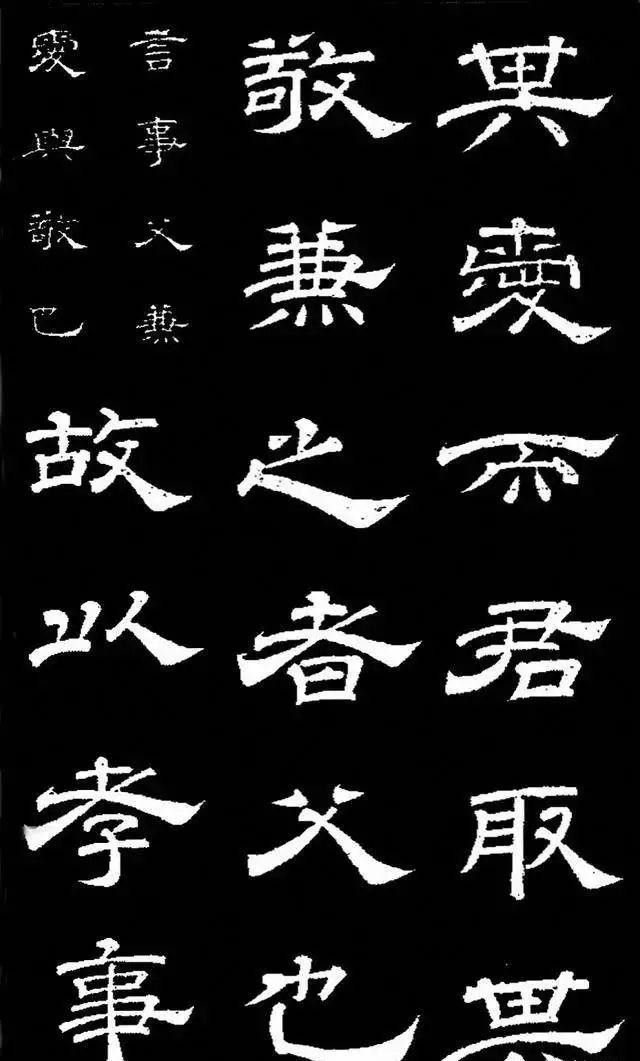 其愛而君取其
敬兼之者父也
言事父兼
愛與敬也
故以孝事